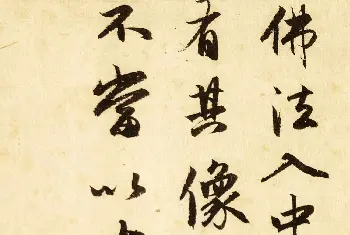 佛法入中
有其像
不當以